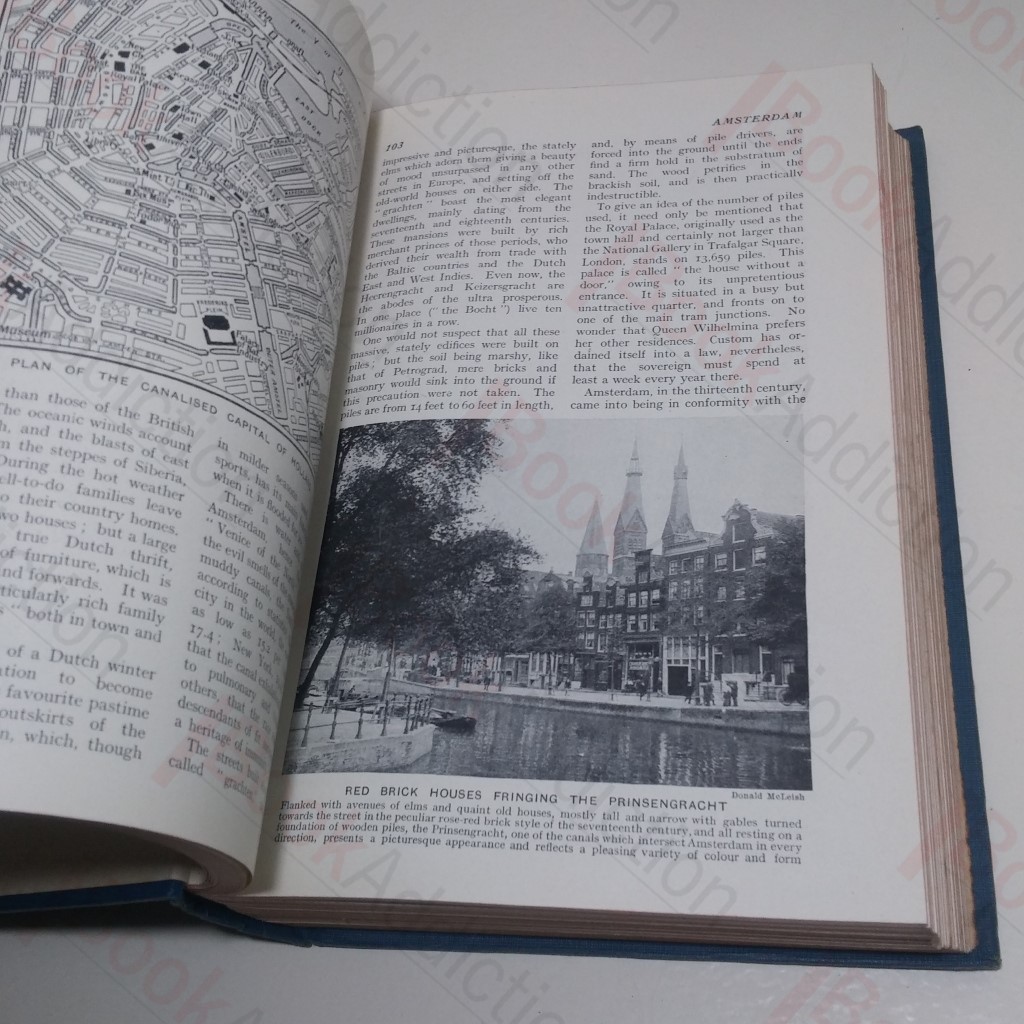 The Y of
EAST
DOCK
Royal Palace
Town
Hall
Mint T.
Museum
PLAN OF THE CANALISED CAPITAL OF HOLL
than those of the British
The oceanic winds account
h, and the blasts of east
m the steppes of Siberia,
During the hot weather
ell-to-do families leave
o their country homes.
wo houses; but a large
true Dutch thrift,
of furniture, which is
nd forwards. It was
ticularly rich family
" both in town and
of a Dutch winter
ation to become
favourite pastime
outskirts of the
n, which, though
in milder season
sports, has its
when it is flooded
There is
Amsterdam,
"Venice of the
the evil smells of
muddy canals,
according to
city in the world,
as low as 15.2
17.4; New York,
that the canal
to pulmonary
others, that the
descendants of
a heritage of
The streets
called "grachten"
103
AMSTERDAM
impressive and picturesque, the stately
elms which adorn them giving a beauty
of mood unsurpassed in any other
streets in Europe, and setting off the
old-world houses on either side. The
"grachten" boast the most elegant
dwellings, mainly dating from the
seventeenth and eighteenth centuries.
These mansions were built by rich
merchant princes of those periods, who
derived their wealth from trade with
the Baltic countries and the Dutch
East and West Indies. Even now, the
Heerengracht and Keizersgracht are
the abodes of the ultra prosperous.
In one place ("the Bocht") live ten
millionaires in a row.
One would not suspect that all these
massive, stately edifices were built on
piles; but the soil being marshy, like
that of Petrograd, mere bricks and
masonry would sink into the ground if
this precaution were not taken. The
piles are from 14 feet to 60 feet in length,
and, by means of pile drivers, are
forced into the ground until the ends
find a firm hold in the substratum of
sand. The wood petrifies in the
brackish soil, and is then practically
indestructible.
To give an idea of the number of piles
used, it need only be mentioned that
the Royal Palace, originally used as the
town hall and certainly not larger than
the National Gallery in Trafalgar Square,
London, stands on 13,659 piles. This
palace is called "the house without a
door," owing to its unpretentious
entrance. It is situated in a busy but
unattractive quarter, and fronts on to
one of the main tram junctions. No
wonder that Queen Wilhelmina prefers
her other residences. Custom has or-
dained itself into a law, nevertheless,
that the sovereign must spend at
least a week every year there.
Amsterdam, in the thirteenth century,
came into being in conformity with the
RED BRICK HOUSES FRINGING THE PRINSENGRACHT
Donald McLeish
Flanked with avenues of elms and quaint old houses, mostly tall and narrow with gables turned
towards the street in the peculiar rose-red brick style of the seventeenth century, and all resting on a
foundation of wooden piles, the Prinsengracht, one of the canals which intersect Amsterdam in every
direction, presents a picturesque appearance and reflects a pleasing variety of colour and form
BookAddiction